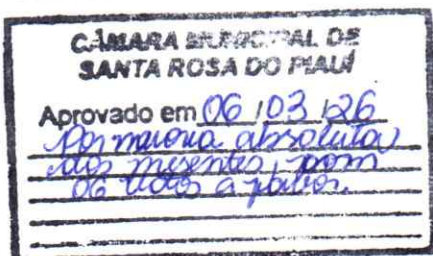 CÂMARA MUNICIPAL DE
SANTA ROSA DO PIAUÍ
Aprovado em 06/03/26
Por maioria absoluta
dos presentes, com
06 votos a favor.